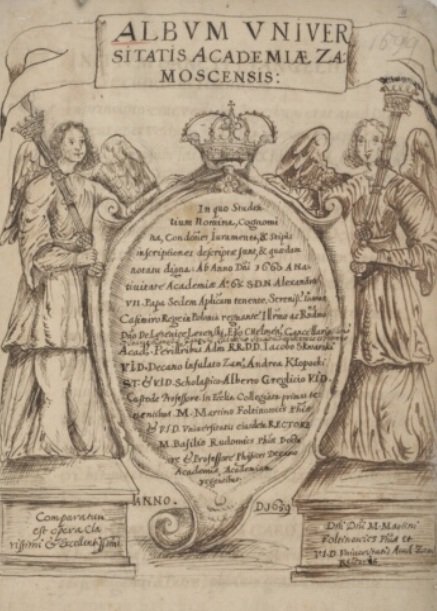 ALBVM VNIVER
SITATIS ACADEMIÆ ZA:
MOSCENSIS:
In quo Studen
tium Nomina, Cognomi
na, Condoẽs Iuramenta, & Stipis
inscriptiones descriptæ sunt, & quædam
notatu digna. Ab Anno Dñi 1660 A Na
tiuitate Academiæ Aº. 6
S.D.N. Alexandro
VII. Papa Sedem Aplicam tenente. Sereniss.
Casimiro Rege in Polonia regnante Illmo ac Rndmo
Dño De
Epo Chelmen. Cancellario
Acad. Perillribus Adm RR.DD. Iacobo Skwarski
V.I.D. Decano Infulato Zam. Andrea Kłopocki
S.T. & V.I.D. Scholastico Alberto
V.I.D.
Custode Professore. in Ecclia Collegiata primas te
nentibus M. Martino Foltinowics Phiæ
& V.I.D. Vniuersitatis eiusdem RECTORE
M. Basilio Rudomics Phiæ Docto
re & Professore Phisices Decano
Academiæ, Academiam
regentibus.
ANNO.
D. 1659
Comparatum
est opera Cla
rissimi & Excellentissimi
Dñi Dñi M. Martini
Foltinowics Phiæ et
V.I.D. Vniuersitatis Acad. Zam